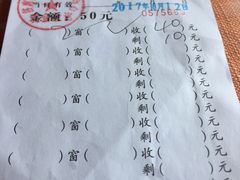 当日有效 2017年8月12日
金额: 50元 0575663
( )窗( )收( 40 )元
剩( 10 )元
( )窗( )收( )元
剩( )元
( )窗( )收( )元
剩( )元
( )窗( )收( )元
剩( )元
( )窗( )收( )元
剩( )元
( )窗( )收( )元
剩( )元